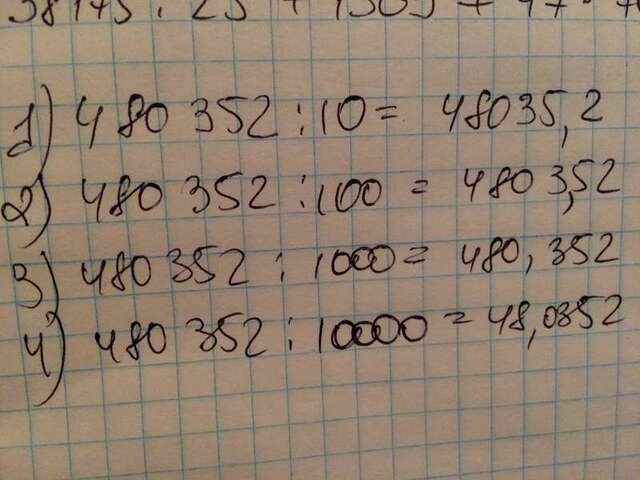 38145 : 25 + 1505 + 47 · 4
1) 480 352 : 10 = 48035,2
2) 480 352 : 100 = 4803,52
3) 480 352 : 1000 = 480,352
4) 480 352 : 10000 = 48,0352